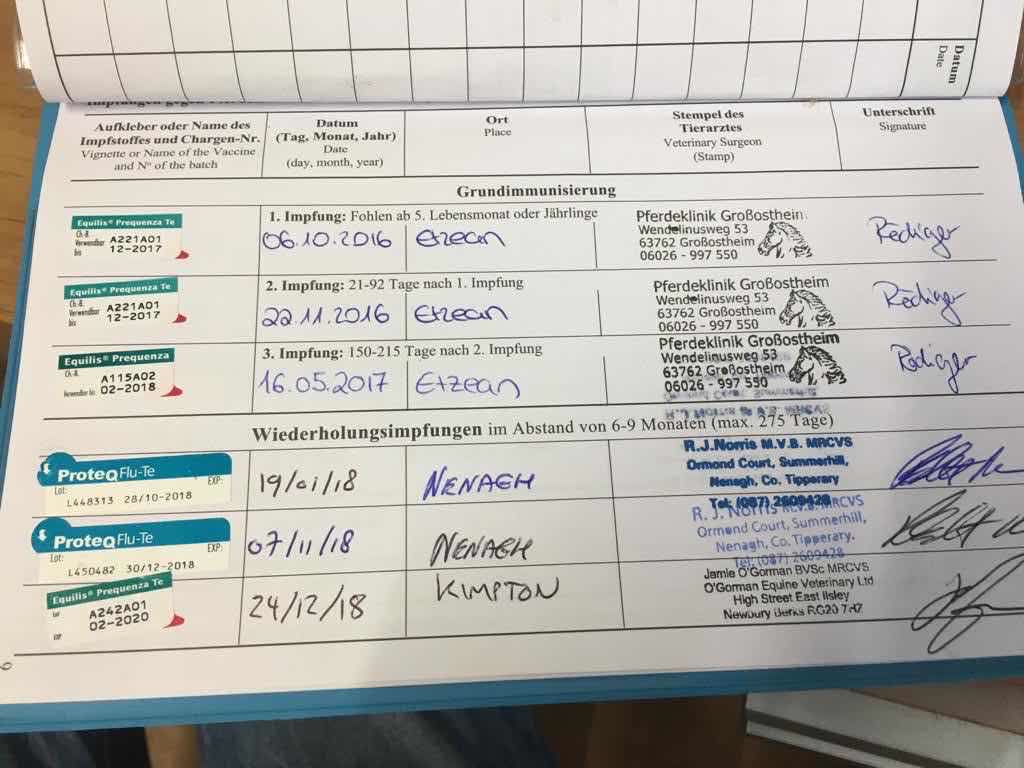 Datum
Date
Aufkleber oder Name des
Impfstoffes und Chargen-Nr.
Vignette or Name of the Vaccine
and Nº of the batch
Datum
(Tag, Monat, Jahr)
Date
(day, month, year)
Ort
Place
Stempel des
Tierarztes
Veterinary Surgeon
(Stamp)
Unterschrift
Signature
Grundimmunisierung
Equilis® Prequenza Te
Ch.-B.
Verwendbar
bis
A221A01
12-2017
1. Impfung: Fohlen ab 5. Lebensmonat oder Jährlinge
06.10.2016
Etzean
Pferdeklinik Großostheim
Wendelinusweg 53
63762 Großostheim
06026 - 997 550
Rediger
Equilis® Prequenza Te
Ch.-B.
Verwendbar
bis
A221A01
12-2017
2. Impfung: 21-92 Tage nach 1. Impfung
22.11.2016
Etzean
Pferdeklinik Großostheim
Wendelinusweg 53
63762 Großostheim
06026 - 997 550
Rediger
Equilis® Prequenza
Ch.-B.
Verwendbar bis
A115A02
02-2018
3. Impfung: 150-215 Tage nach 2. Impfung
16.05.2017
Etzean
Pferdeklinik Großostheim
Wendelinusweg 53
63762 Großostheim
06026 - 997 550
Rediger
Wiederholungsimpfungen im Abstand von 6-9 Monaten (max. 275 Tage)
ProteqFlu-Te
Lot:
EXP:
L448313 28/10-2018
19/01/18
NENAGH
R.J.Norris M.V.B. MRCVS
Ormond Court, Summerhill,
Nenagh, Co. Tipperary
Tel: (087) 2609428
ProteqFlu-Te
Lot:
EXP:
L450482 30/12-2018
07/11/18
NENAGH
R. J. Norris MRCVS
Ormond Court, Summerhill,
Nenagh, Co. Tipperary.
Tel: (087) 2609428
Equilis® Prequenza Te
Lot
EXP
A242A01
02-2020
24/12/18
KIMPTON
Jamie O'Gorman BVSc MRCVS
O'Gorman Equine Veterinary Ltd
High Street East Ilsley
Newbury Berks RG20 7